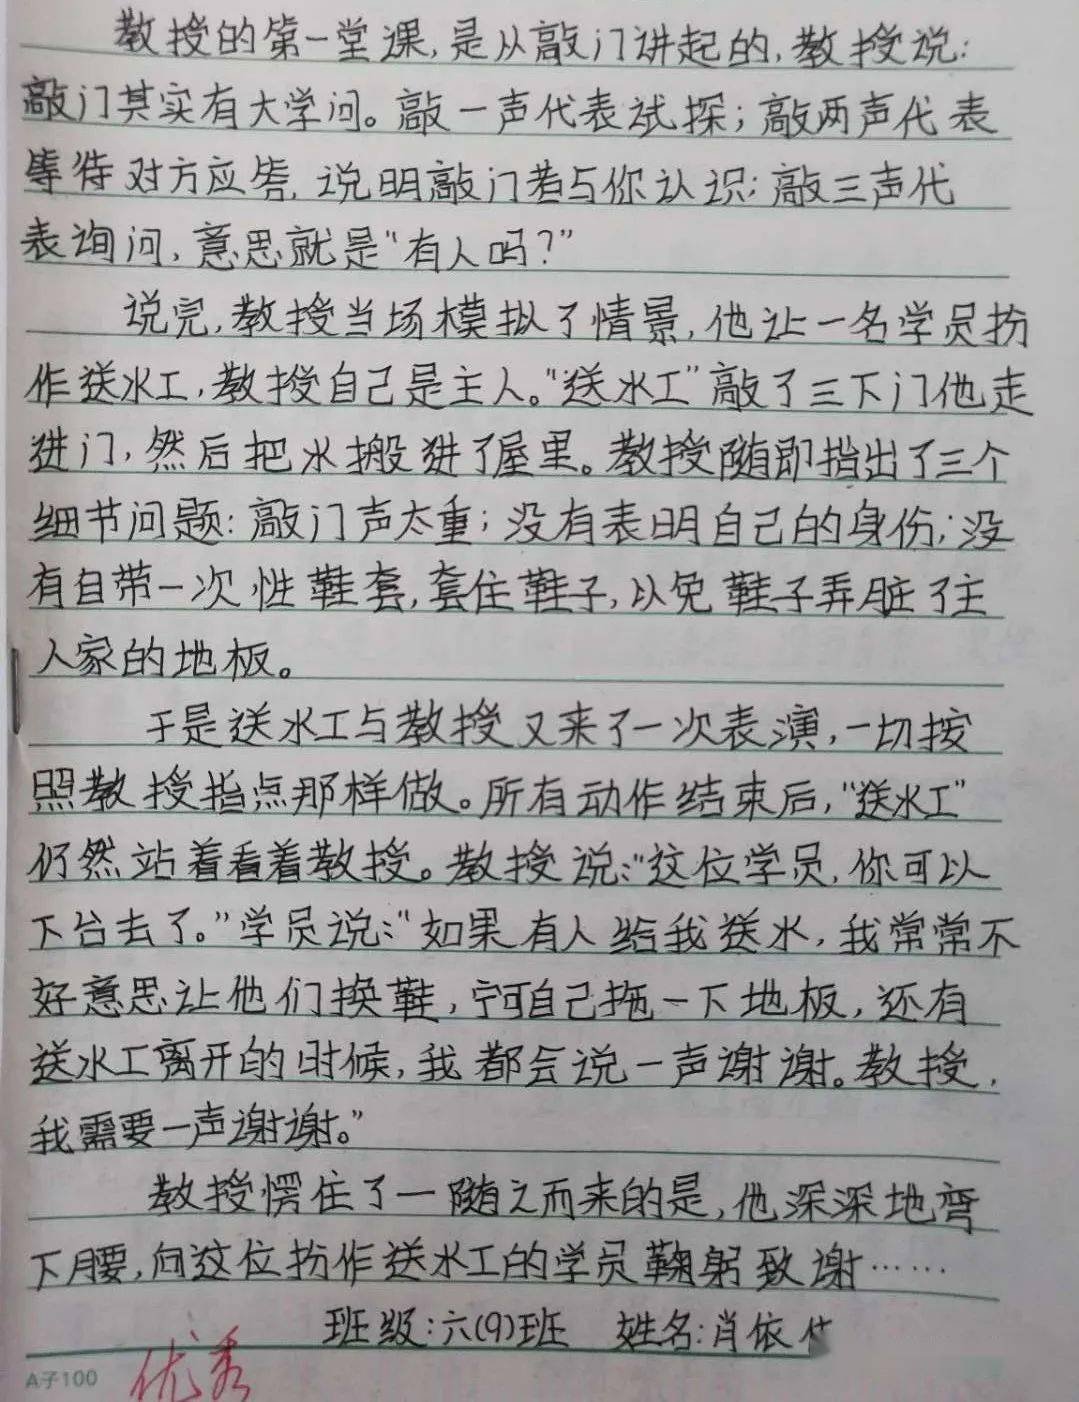 教授的第一堂课,是从敲门讲起的,教授说:
敲门其实有大学问。敲一声代表试探;敲两声代表
等待对方应答,说明敲门者与你认识;敲三声代
表询问,意思就是“有人吗?”
说完,教授当场模拟了情景,他让一名学员扮
作送水工,教授自己是主人。“送水工”敲了三下门他走
进门,然后把水搬进了屋里。教授随即指出了三个
细节问题:敲门声太重;没有表明自己的身份;没
有自带一次性鞋套,套住鞋子,以免鞋子弄脏了主
人家的地板。
于是送水工与教授又来了一次表演,一切按
照教授指点那样做。所有动作结束后,“送水工”
仍然站着看着教授。教授说:“这位学员,你可以
下台去了。”学员说:“如果有人给我送水,我常常不
好意思让他们换鞋,宁可自己拖一下地板,还有
送水工离开的时候,我都会说一声谢谢。教授,
我需要一声谢谢。”
教授愣住了一随之而来的是,他深深地弯
下腰,向这位扮作送水工的学员鞠躬致谢……
班级:六(9)班 姓名:肖依
优秀
A子100